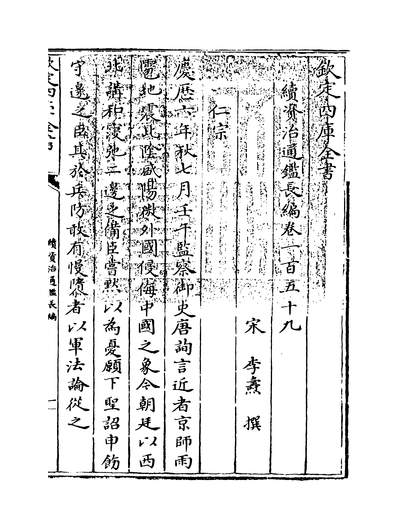 欽定四庫全書
續資治通鑑長編卷一百五十九
宋 李燾 撰
仁宗
慶歷六年秋七月壬午監察御史唐詢言近者京師雨
雹地震此陰盛陽微外國侵侮中國之象今朝廷以西
北講和寖弛二邊之備臣嘗默以為憂願下聖詔申飭
守邊之臣其於兵防敢有慢隳者以軍法論從之
續資治通鑑長編